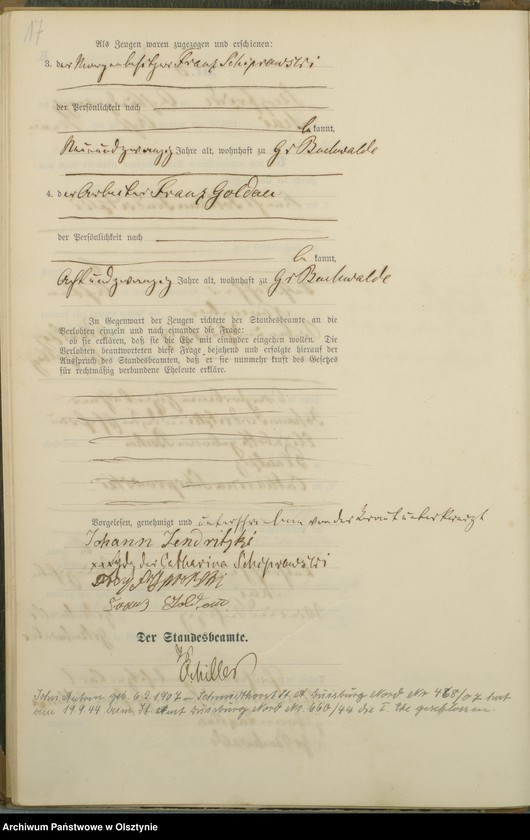 17
Als Zeugen waren zugezogen und erschienen:
3. der Morgenbesitzer Franz Schiprowski
der Persönlichkeit nach
be kannt,
Neunundzwanzig Jahre alt, wohnhaft zu Gr Buchwalde
4. der Arbeiter Franz Goldau
der Persönlichkeit nach
be kannt,
Achtundzwanzig Jahre alt, wohnhaft zu Gr Buchwalde
In Gegenwart der Zeugen richtete der Standesbeamte an die
Verlobten einzeln und nach einander die Frage:
ob sie erklären, daß sie die Ehe mit einander eingehen wollen. Die
Verlobten beantworteten diese Frage bejahend und erfolgte hierauf der
Ausspruch des Standesbeamten, daß er sie nunmehr kraft des Gesetzes
für rechtmäßig verbundene Eheleute erkläre.
Vorgelesen, genehmigt und unterschrieben von der Braut unterkreuzt
Johann Jendritzki
xxx Hdz der Catharina Schiprowski
Franz Goldau
Der Standesbeamte.
Schiller
geb. 6.2.1907 Schmidthorst St. A. Duisburg Nord Nr 468/07 hat
am 19.9.44 beim St. Amt Duisburg Nord Nr. 660/44 die I. Ehe geschlossen
Archiwum Państwowe w Olsztynie